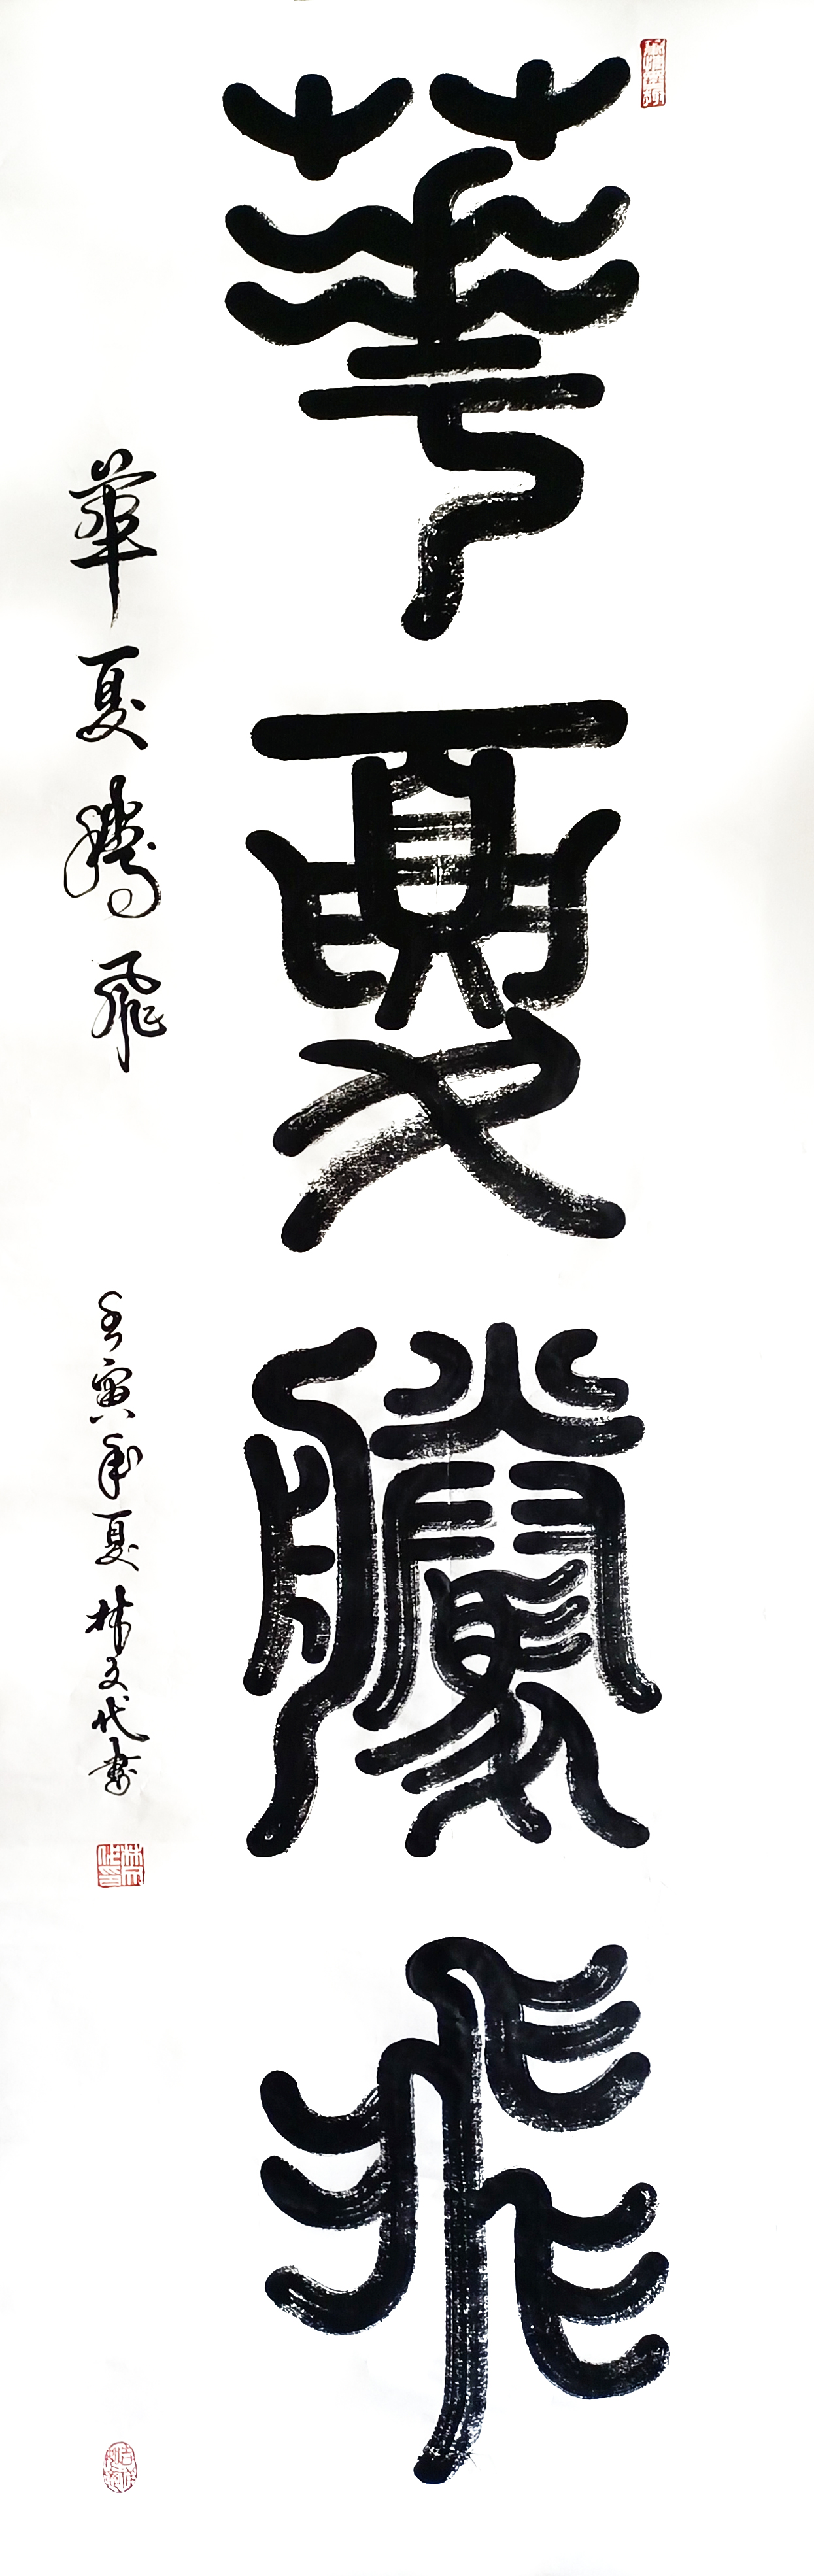 華夏騰飛
華夏騰飛
壬寅年夏林文代書